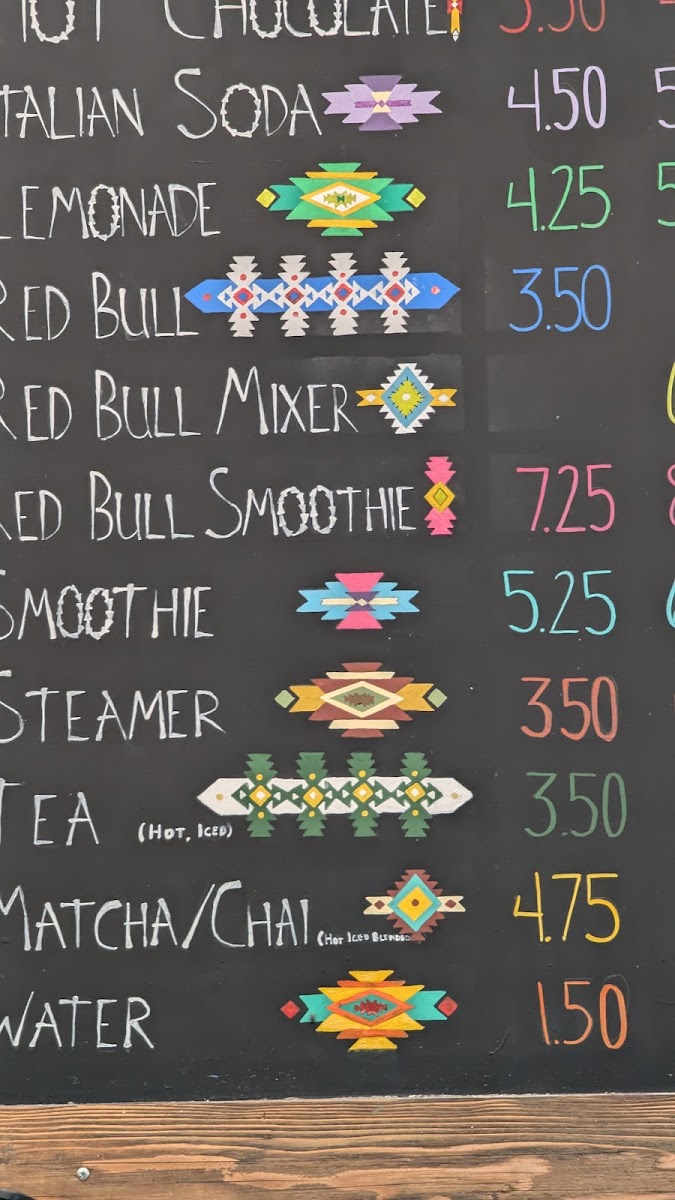 HOT CHOCOLATE 3.50
ITALIAN SODA 4.50 5
LEMONADE 4.25 5
RED BULL 3.50
RED BULL MIXER
RED BULL SMOOTHIE 7.25 8
SMOOTHIE 5.25 6
STEAMER 3.50
TEA (HOT, ICED) 3.50
MATCHA/CHAI (HOT ICED BLENDED) 4.75
WATER 1.50